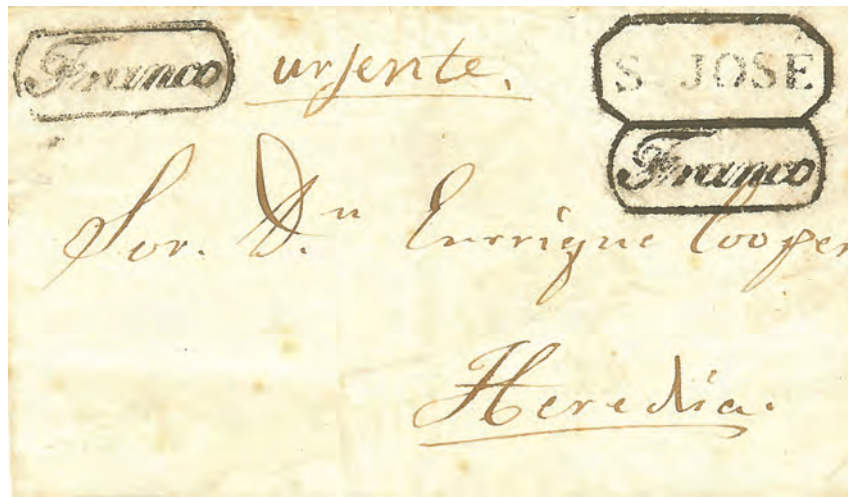 Franco urjente. S. JOSE
Franco
Sor. Dn. Enrrique Cooper
Heredia.